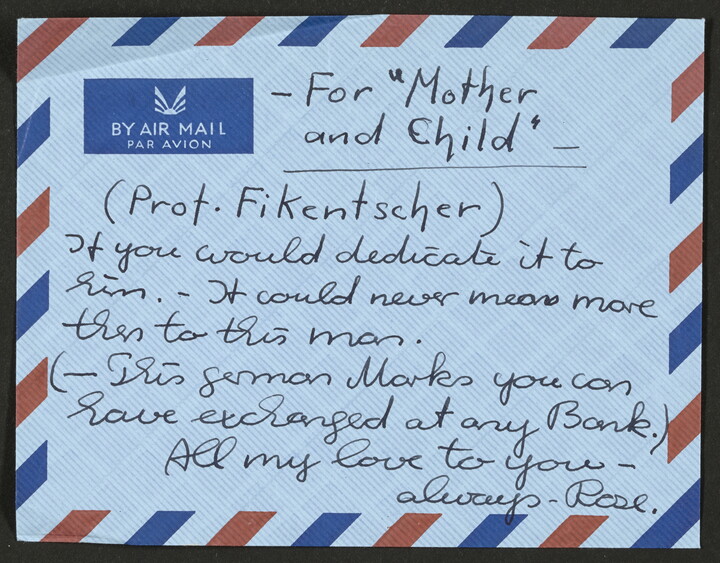 BY AIR MAIL
PAR AVION
– For "Mother
and Child" –
(Prof. Fikentscher)
If you would dedicate it to
him. – It could never mean more
then to this man.
(– This german Marks you can
have exchanged at any Bank.)
All my love to you –
always – Rose.